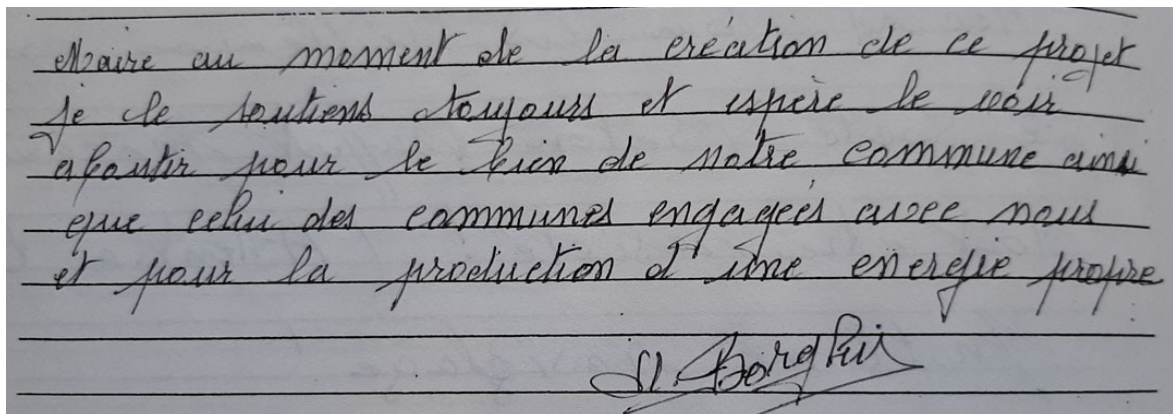 Maire au moment de la création de ce projet
je le soutiens toujours et espère le voir
aboutir pour le bien de notre commune ainsi
que celui des communes engagées avec nous
et pour la production d'une energie propre